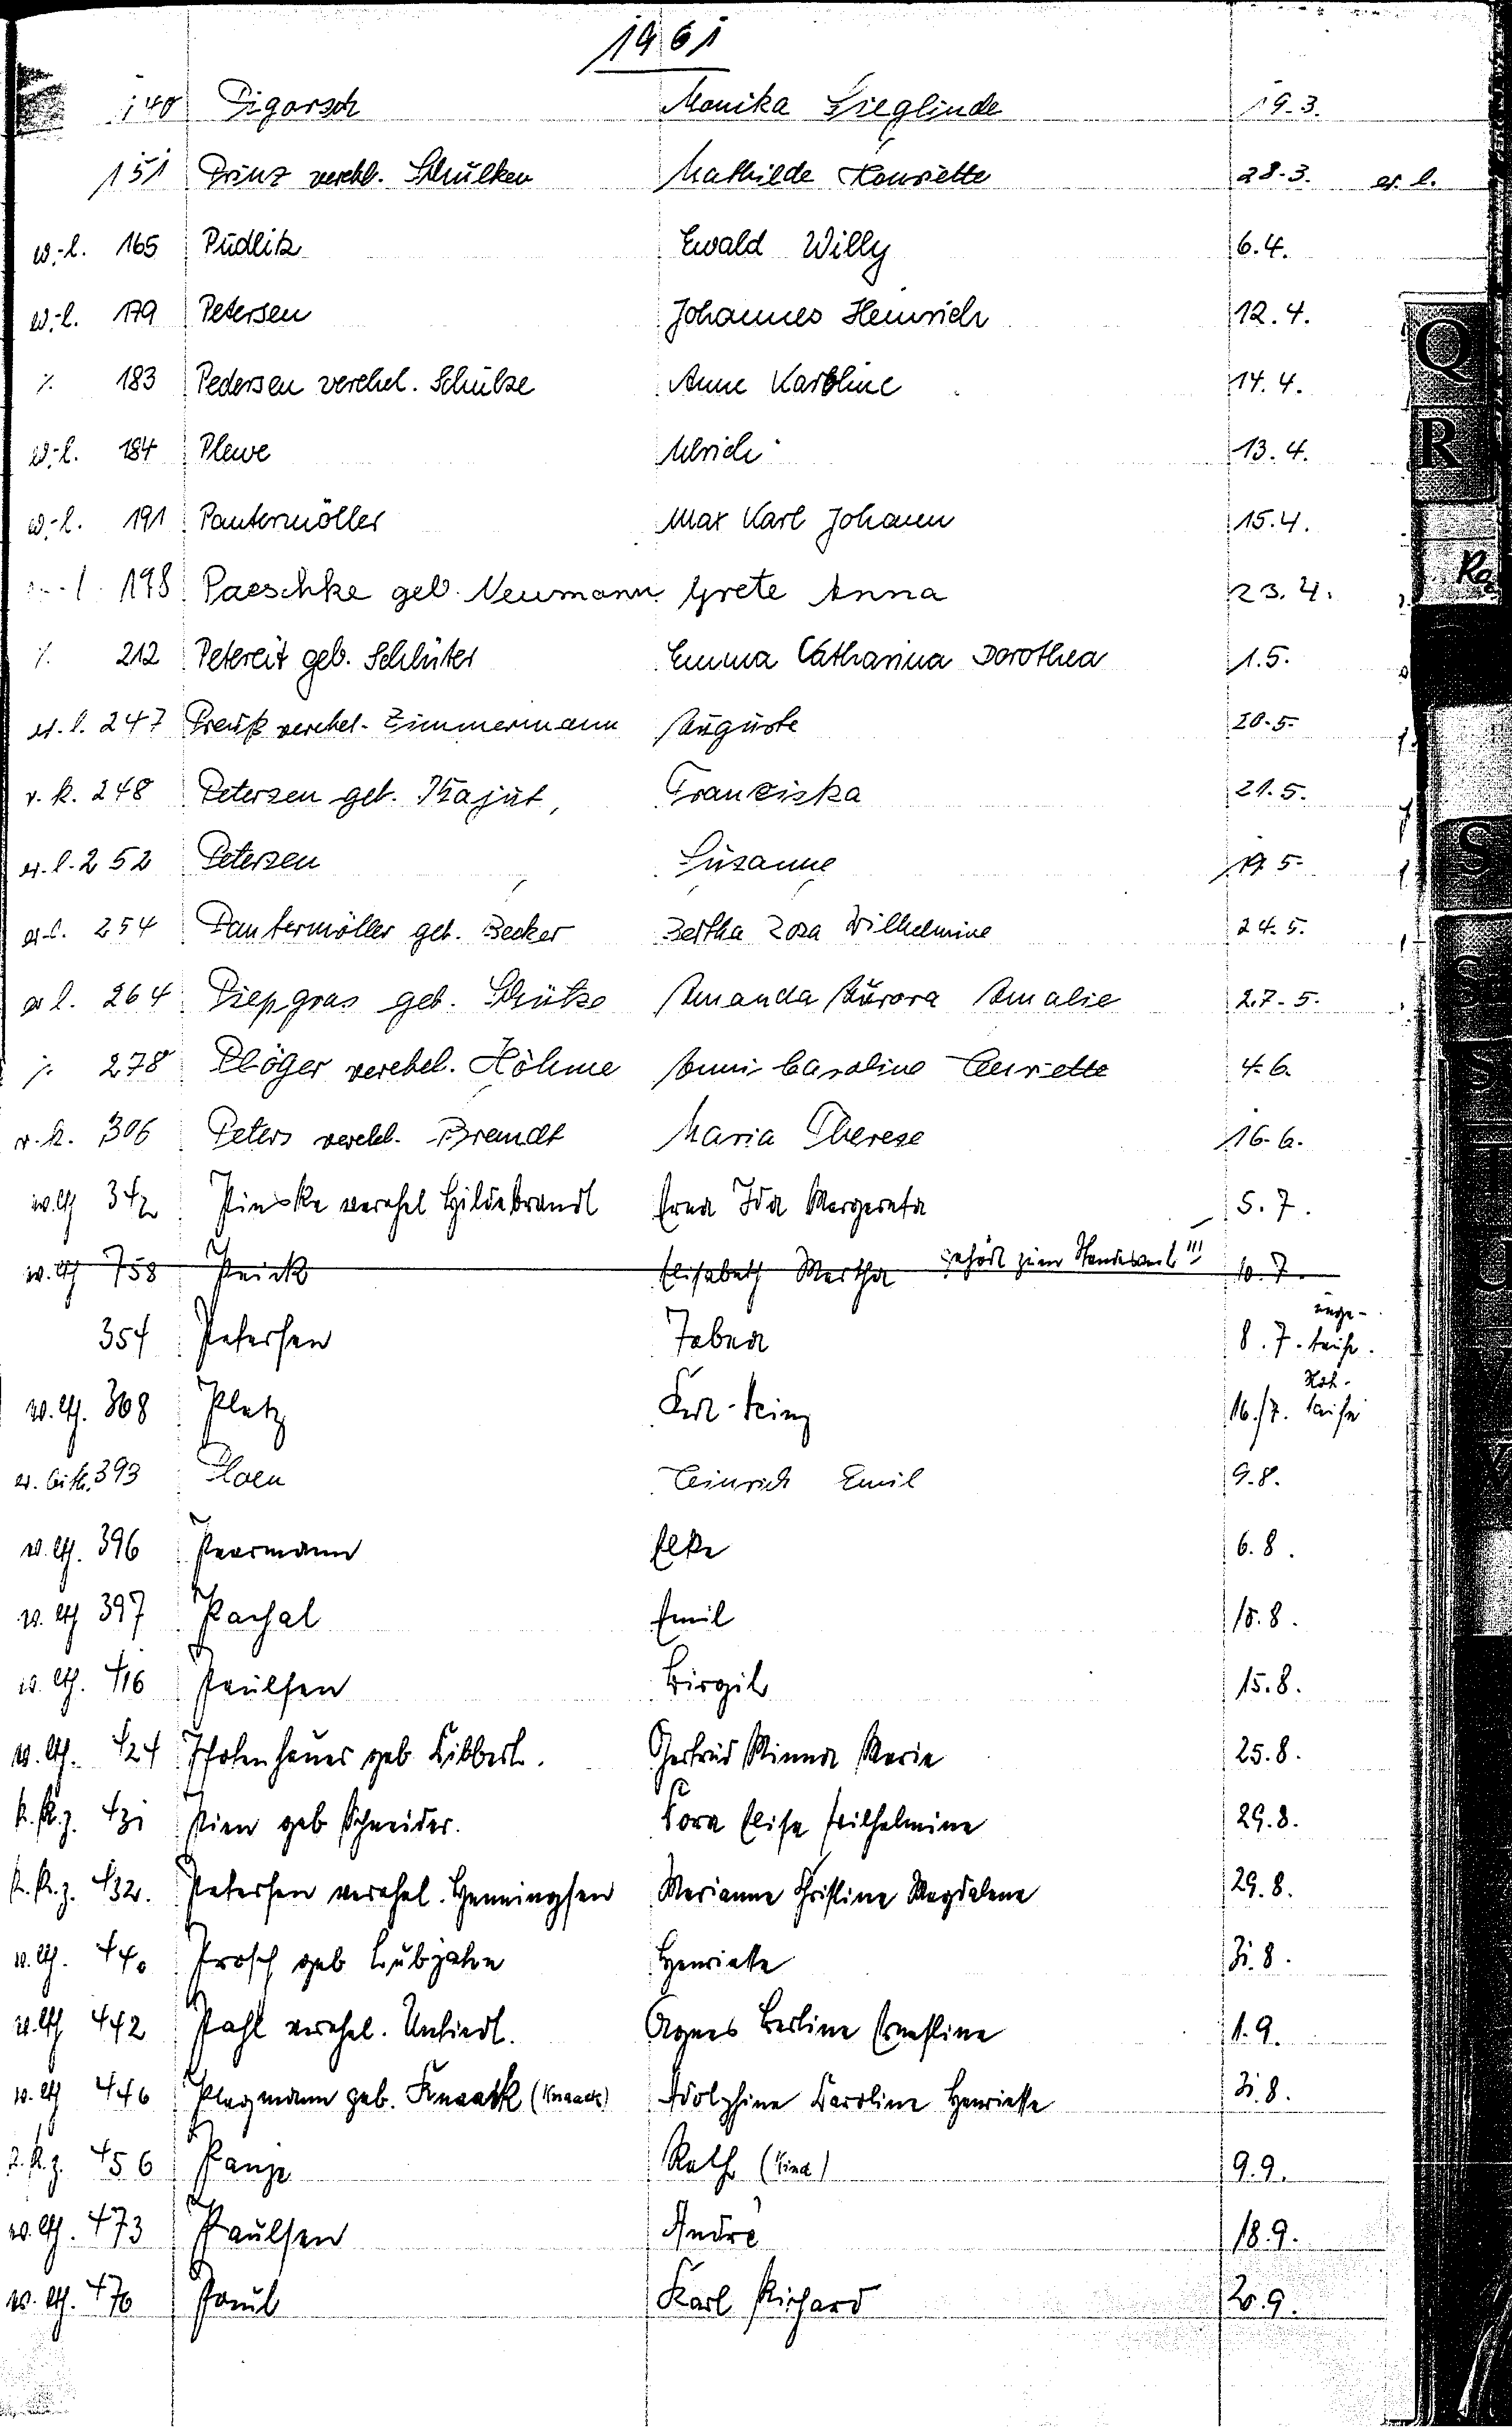 1961
140 Pigorsch Monika Sieglinde 19.3.
151 Prinz verehl. Schulken Mathilde Henriette 28.3. ev. l.
ev.-l. 165 Pudlitz Ewald Willy 6.4.
ev.-l. 179 Petersen Johannes Heinrich 12.4.
% 183 Pedersen verehel. Schulze Anne Karoline 14.4.
ev.-l. 184 Plewe Ulrich 13.4.
ev.-l. 191 Pantermöller Max Karl Johann 15.4.
198 Paeschke geb. Neumann Grete Anna 23.4.
% 212 Petereit geb. Schlüter Emma Catharina Dorothea 1.5.
ev. l. 247 Preuß verehel. Zimmermann Auguste 20.5.
r. k. 248 Petersen geb. Kajut, Franziska 21.5.
ev. l. 252 Petersen Susanne 19.5.
ev.-l. 254 Pantermöller geb. Becker Bertha Rosa Wilhelmine 24.5.
ev l. 264 Piepgras geb. Schütze Amanda Aurora Amalie 27.5.
% 278 Plöger verehel. Höhme Anni Caroline Henriette 4.6.
r. k. 306 Peters verehl. Brandt Maria Therese 16.6.
ev. lth 342 Pinske verehel Hildebrandt Erna Ida Margareta 5.7.
ev. lth 758 Elisabeth Martha gehört zum Standesamt III 10.7.
unge-
354 Petersen 8.7. tauft.
Not-
ev. lth. 368 Platz Karl-Heinz 16./7. taufe
ev. luth. 393 Ploen Heinrich Emil 9.8.
ev. lth. 396 Paarmann Elke 6.8.
ev. lth 397 Emil 10.8.
ev. lth. 416 Paulsen Birgit 15.8.
ev. lth. 424 Pfotenhauer geb. Gertrud Minna Marie 25.8.
k. K. z. 431 Pien geb Schneider. Dora Elise Wilhelmine 29.8.
k. K. z. 432. Petersen verehel. Henningsen Marianne Christine Magdalene 29.8.
ev. lth. 440 Prosch geb Lubjahn Henriette 31.8.
ev. lth 442 Pahl verehel. Untiedt. Agnes Bertine Ernestine 1.9.
ev. lth 446 Plagmann geb. Knaack (Knaack) Adolphine Caroline Henriette 31.8.
k. K. z. 456 Panje Ralf (Kind) 9.9.
ev. lth. 473 Paulsen André 18.9.
ev. lth. 476 Paul Karl Richard 20.9.
Q
R
S